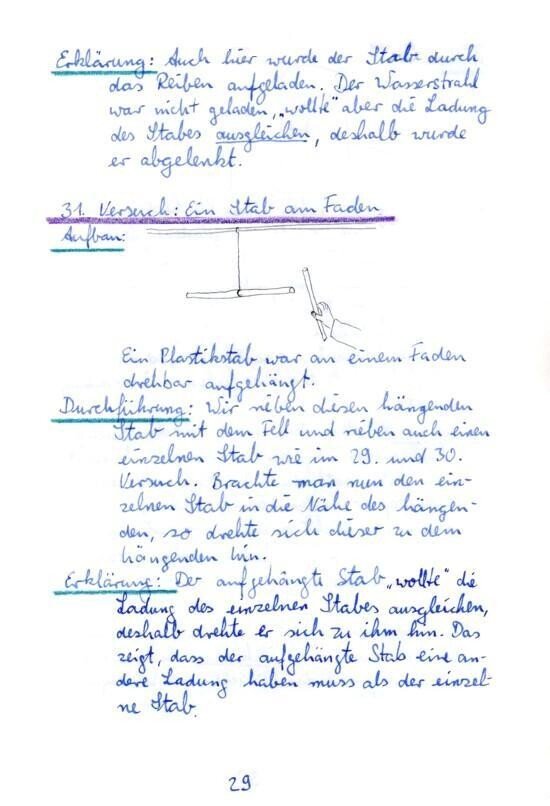 Erklärung: Auch hier wurde der Stab durch
das Reiben aufgeladen. Der Wasserstrahl
war nicht geladen, „wollte" aber die Ladung
des Stabes ausgleichen, deshalb wurde
er abgelenkt.
31. Versuch: Ein Stab am Faden
Aufbau:
Ein Plastikstab war an einem Faden
drehbar aufgehängt.
Durchführung: Wir rieben diesen hängenden
Stab mit dem Fell und rieben auch einen
einzelnen Stab wie im 29. und 30.
Versuch. Brachte man nun den ein-
zelnen Stab in die Nähe des hängen-
den, so drehte sich dieser zu dem
hängenden hin.
Erklärung: Der aufgehängte Stab „wollte" die
Ladung des einzelnen Stabes ausgleichen,
deshalb drehte er sich zu ihm hin. Das
zeigt, dass der aufgehängte Stab eine an-
dere Ladung haben muss als der einzel-
ne Stab.
29